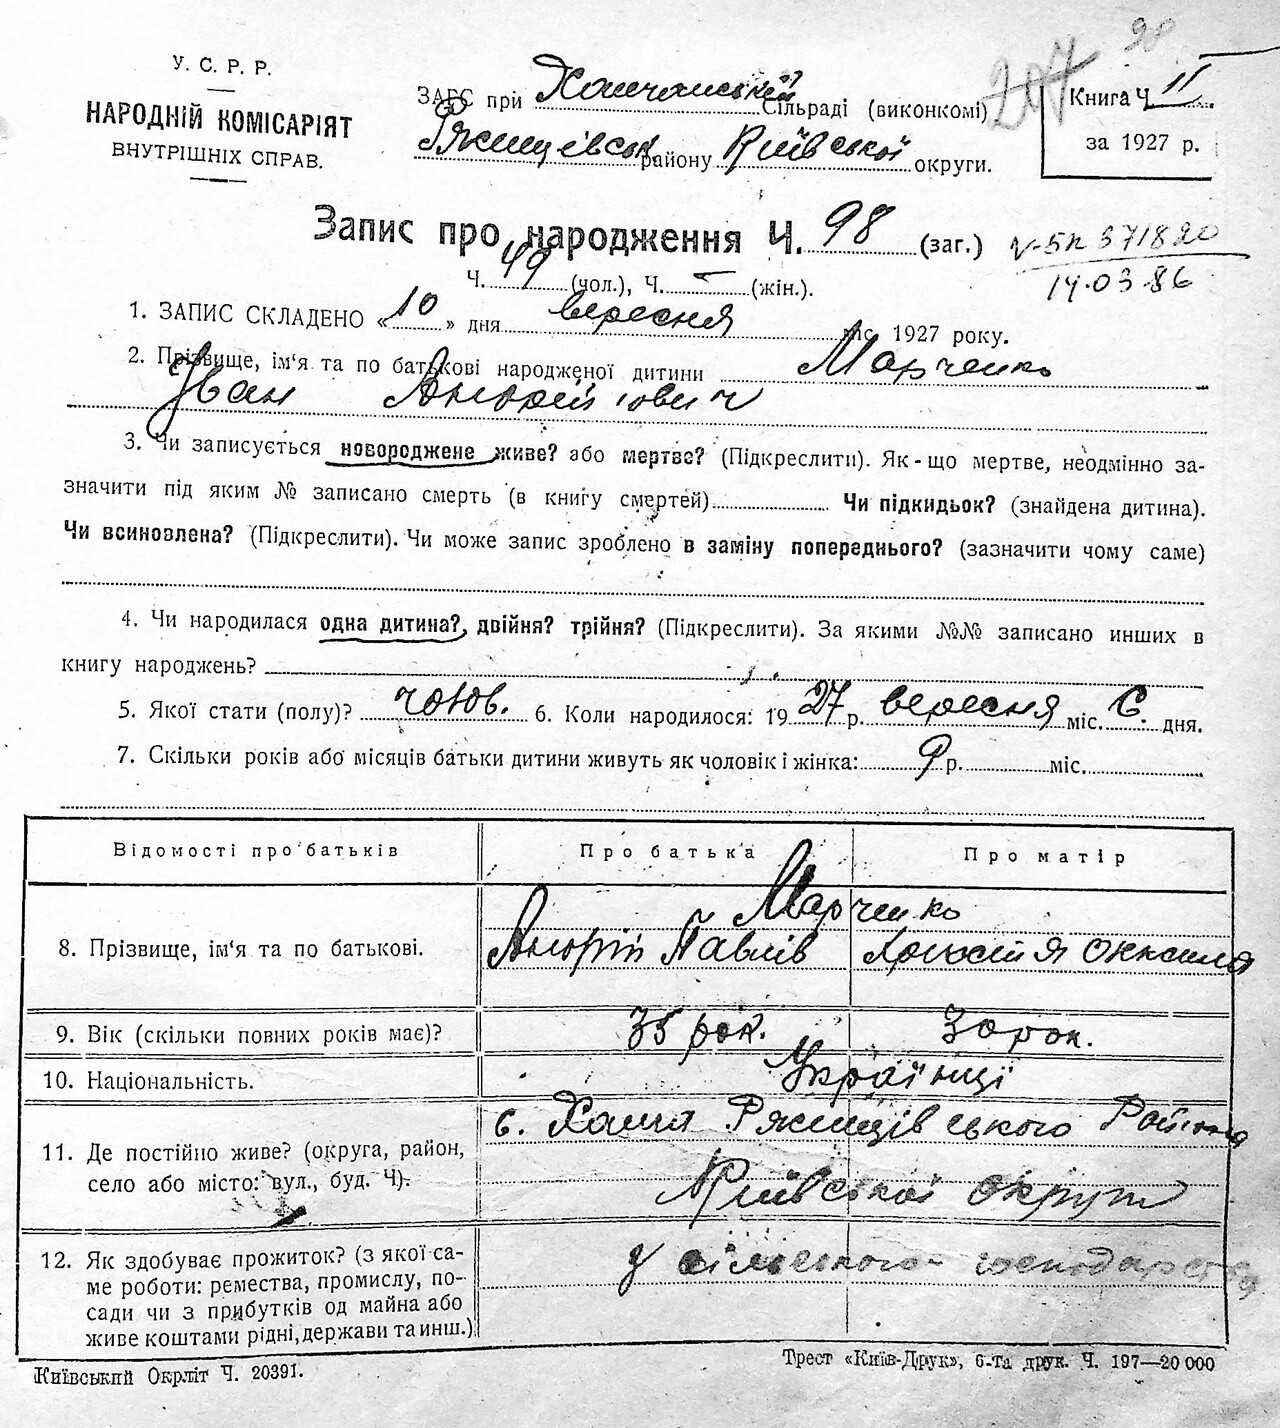 98
207
У. С. Р. Р.
НАРОДНІЙ КОМІСАРІЯТ
ВНУТРІШНІХ СПРАВ.
ЗАГС при Ханчанській Сільраді (виконкомі)
Ржищівськ. району Київської округи.
Книга Ч. II
за 1927 р.
Запис про народження Ч. 98 (заг.)
Ч. 49 (чол.), Ч. – (жін.).
V-БК 371820
14.03.86
1. ЗАПИС СКЛАДЕНО « 10 » дня вересня міс. 1927 року.
2. Прізвище, ім'я та по батькові народженої дитини Марченко
Іван Андрійович
3. Чи записується новороджене живе? або мертве? (Підкреслити). Як-що мертве, неодмінно за-
значити під яким № записано смерть (в книгу смертей) Чи підкидьок? (знайдена дитина).
Чи всиновлена? (Підкреслити). Чи може запис зроблено в заміну попереднього? (зазначити чому саме)
4. Чи народилася одна дитина?, двійня? трійня? (Підкреслити). За якими №№ записано инших в
книгу народжень?
5. Якої стати (полу)? чолов. 6. Коли народилося: 1927 р. вересня міс. 6. дня.
7. Скільки років або місяців батьки дитини живуть як чоловік і жінка: 9 р. міс.
Відомості про батьків Про батька Про матір
8. Прізвище, ім'я та по батькові. Марченко
Андрій Павлів
9. Вік (скільки повних років має)? 35 рок. 30 рок.
10. Національність. Українці
11. Де постійно живе? (округа, район,
село або місто: вул., буд. Ч).
с. Ханча Ржищівського Району
Київської округи
12. Як здобуває прожиток? (з якої са-
ме роботи: ремества, промислу, по-
сади чи з прибутків од майна або
живе коштами рідні, держави та инш.)
з сільського-господарства
Київський Окрліт Ч. 20391.
Трест «Київ-Друк», 6-та друк. Ч. 197—20 000